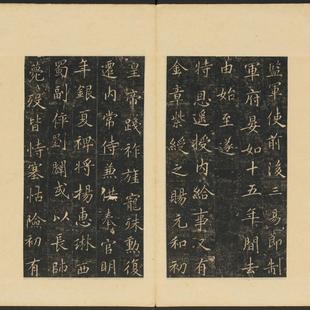 監軍使前後三易節制
軍府晏如十五年間去
由始至遂
特恩遥授內給事又有
金章紫綬之賜元和初
皇帝踐祚旌寵殊勳復
遷內常侍兼供奉官明
年銀夏裨將楊惠琳西
蜀副倅劉闢或以長帥
薨歿皆恃塞怙險初有